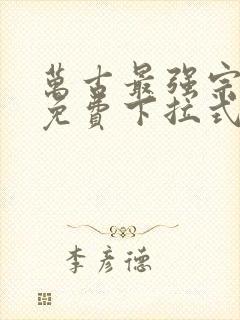 萬古最强宗
免費下拉式
李彦德